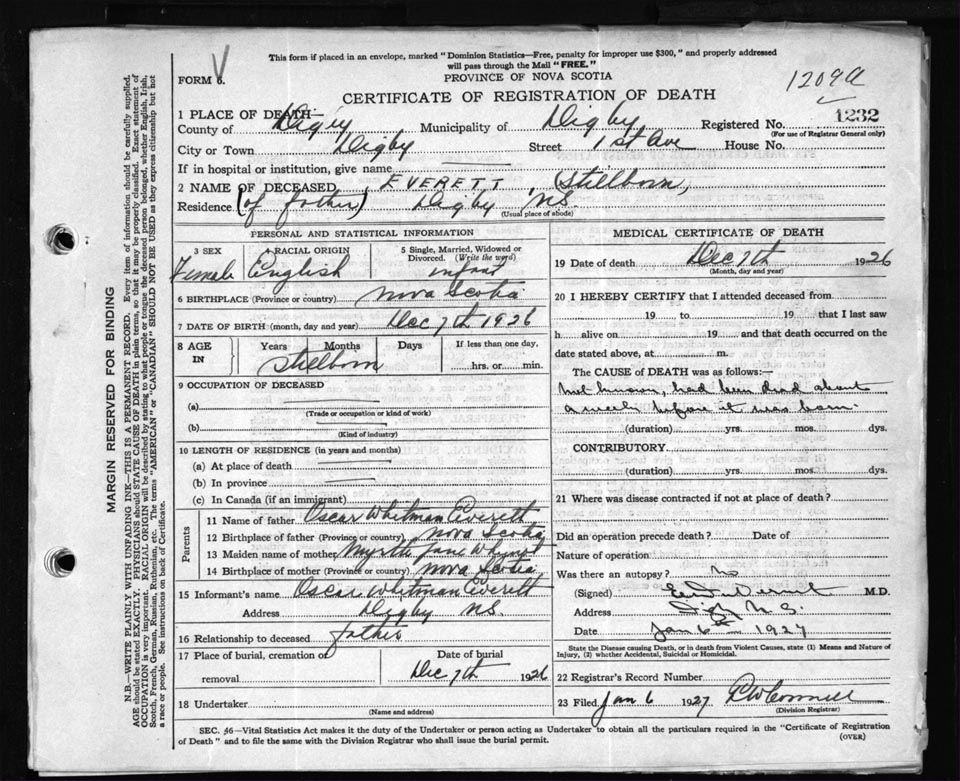 This form if placed in an envelope, marked "Dominion Statistics—Free, penalty for improper use $300," and properly addressed
will pass through the Mail "FREE."
FORM 6.
V
PROVINCE OF NOVA SCOTIA
1209a
CERTIFICATE OF REGISTRATION OF DEATH
1 PLACE OF DEATH—
County of Digby Municipality of Digby Registered No. 1232
(For use of Registrar General only)
City or Town Digby Street 1st Ave House No.
If in hospital or institution, give name
2 NAME OF DECEASED EVERETT, Stillborn,
Residence (of father) Digby N.S.
(Usual place of abode)
PERSONAL AND STATISTICAL INFORMATION
3 SEX Female
4 RACIAL ORIGIN English
5 Single, Married, Widowed or Divorced. (Write the word) infant
6 BIRTHPLACE (Province or country) Nova Scotia
7 DATE OF BIRTH (month, day and year) Dec 7th 1926
8 AGE IN Years Months Days If less than one day, hrs. or min.
Stillborn
9 OCCUPATION OF DECEASED
(a)
(Trade or occupation or kind of work)
(b)
(Kind of industry)
10 LENGTH OF RESIDENCE (in years and months)
(a) At place of death
(b) In province
(c) In Canada (if an immigrant)
Parents
11 Name of father Oscar Whitman Everett
12 Birthplace of father (Province or country) Nova Scotia
13 Maiden name of mother Jane
14 Birthplace of mother (Province or country) Nova Scotia
15 Informant's name Oscar Whitman Everett
Address Digby N.S.
16 Relationship to deceased father
17 Place of burial, cremation or removal
Date of burial Dec 7th 1926
18 Undertaker
(Name and address)
MEDICAL CERTIFICATE OF DEATH
19 Date of death Dec 7th 1926
(Month, day and year)
20 I HEREBY CERTIFY that I attended deceased from
19 to 19 that I last saw
h alive on 19 and that death occurred on the
date stated above, at m.
The CAUSE of DEATH was as follows:—
not known, had been dead about
a week before it was born.
(duration) yrs. mos. dys.
CONTRIBUTORY.
(duration) yrs. mos. dys.
21 Where was disease contracted if not at place of death?
Did an operation precede death? Date of
Nature of operation
Was there an autopsy? No
(Signed) M.D.
Address Digby N.S.
Date Jan 6th 1927
State the Disease causing Death, or in death from Violent Causes, state (1) Means and Nature of
Injury, (2) whether Accidental, Suicidal or Homicidal.
22 Registrar's Record Number
23 Filed Jan 6 1927
(Division Registrar)
SEC. 46—Vital Statistics Act makes it the duty of the Undertaker or person acting as Undertaker to obtain all the particulars required in the "Certificate of Registration
of Death" and to file the same with the Division Registrar who shall issue the burial permit.
(OVER)
MARGIN RESERVED FOR BINDING
N.B.—WRITE PLAINLY WITH UNFADING INK—THIS IS A PERMANENT RECORD. Every item of information should be carefully supplied.
AGE should be stated EXACTLY. PHYSICIANS should STATE CAUSE OF DEATH in plain terms, so that it may be properly classified. Exact statement of
OCCUPATION is very important. RACIAL ORIGIN will be described by stating to what people or tongue the deceased person belonged, whether English, Irish,
Scotch, French, German, Russian, Ruthenian, etc. The terms "AMERICAN" or "CANADIAN" SHOULD NOT BE USED as they express citizenship but not
a race or people. See instructions on back of Certificate.